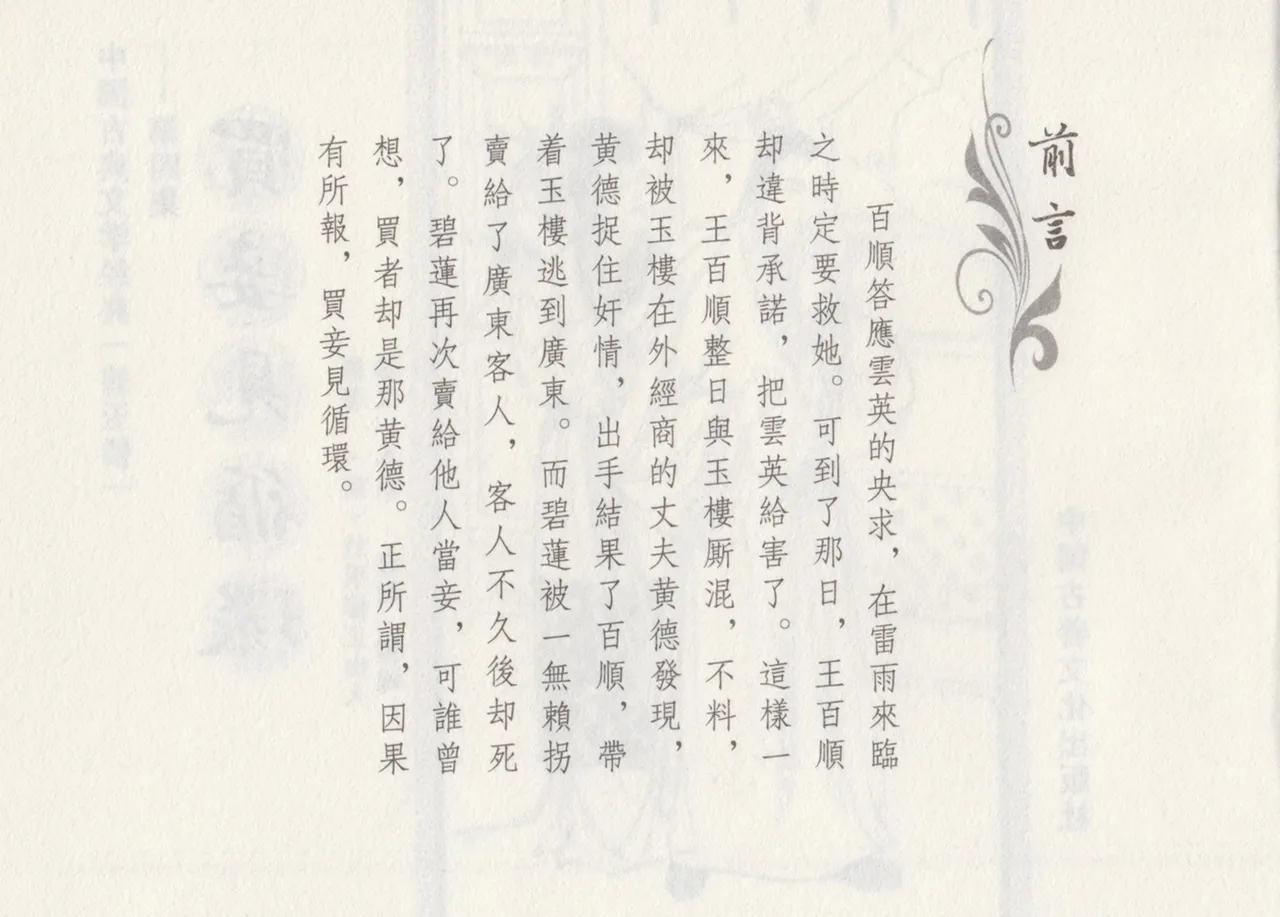 前言
百順答應雲英的央求，在雷雨來臨
之時定要救她。可到了那日，王百順
却違背承諾，把雲英給害了。這樣一
來，王百順整日與玉樓厮混，不料，
却被玉樓在外經商的丈夫黄德發現，
黄德捉住奸情，出手結果了百順，帶
着玉樓逃到廣東。而碧蓮被一無賴拐
賣給了廣東客人，客人不久後却死
了。碧蓮再次賣給他人當妾，可誰曾
想，買者却是那黄德。正所謂，因果
有所報，買妾見循環。